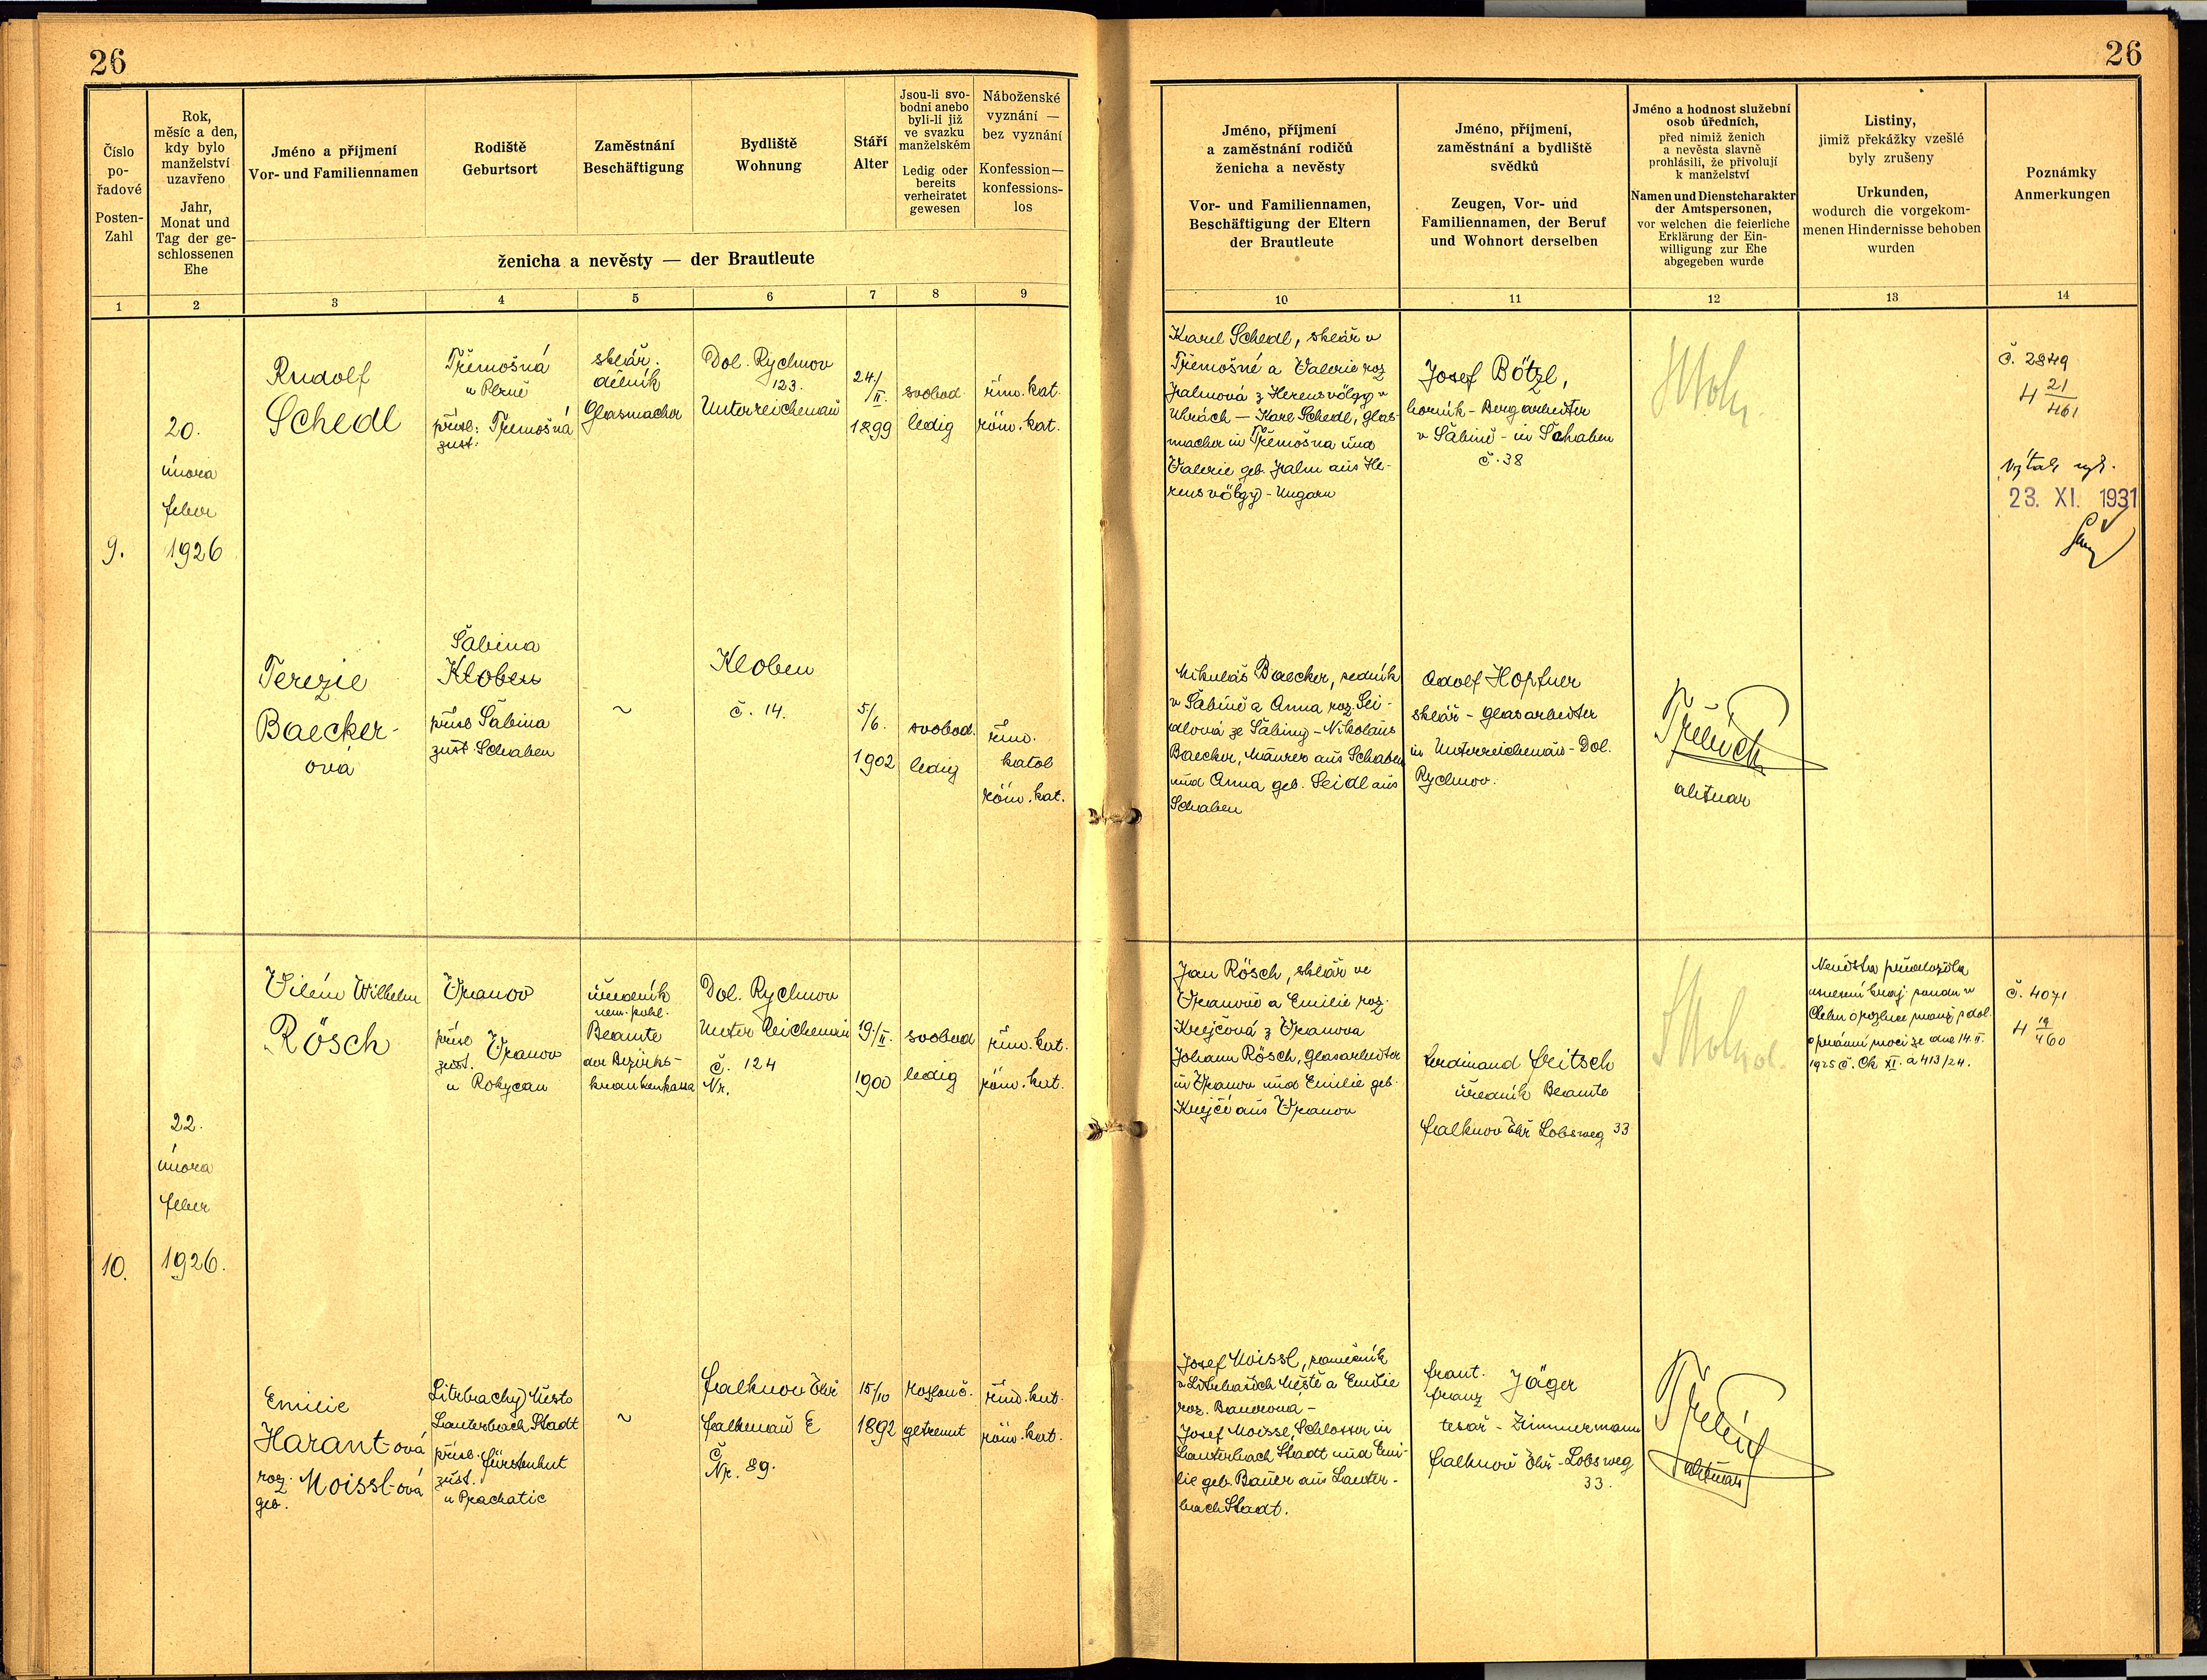 26
26
Číslo
po-
řadové
Posten-
Zahl
Rok,
měsíc a den,
kdy bylo
manželství
uzavřeno
Jahr,
Monat und
Tag der ge-
schlossenen
Ehe
Jméno a příjmení
Vor- und Familiennamen
Rodiště
Geburtsort
Zaměstnání
Beschäftigung
Bydliště
Wohnung
Stáří
Alter
Jsou-li svo-
bodni anebo
byli-li již
ve svazku
manželském
Ledig oder
bereits
verheiratet
gewesen
Náboženské
vyznání —
bez vyznání
Konfession—
konfessions-
los
ženicha a nevěsty — der Brautleute
Jméno, příjmení
a zaměstnání rodičů
ženicha a nevěsty
Vor- und Familiennamen,
Beschäftigung der Eltern
der Brautleute
Jméno, příjmení,
zaměstnání a bydliště
svědků
Zeugen, Vor- und
Familiennamen, der Beruf
und Wohnort derselben
Jméno a hodnost služební
osob úředních,
před nimiž ženich
a nevěsta slavně
prohlásili, že přivolují
k manželství
Namen und Dienstcharakter
der Amtspersonen,
vor welchen die feierliche
Erklärung der Ein-
willigung zur Ehe
abgegeben wurde
Listiny,
jimiž překážky vzešlé
byly zrušeny
Urkunden,
wodurch die vorgekom-
menen Hindernisse behoben
wurden
Poznámky
Anmerkungen
1 2 3 4 5 6 7 8 9 10 11 12 13 14
9.
20.
února
feber
1926
Rudolf
Schedl
Třemošná
u Plzně
přísl. Třemošná
zust.
sklář.
dělník
Glasmacher
Dol. Rychnov
123.
Unterreichenau
24/
II.
1899
svobod
ledig
řím. kat.
röm. kat.
Karel Schedl, sklář v
Třemošné a Valerie roz
Jalmová z Herensvölgy v
Uhrách — Karl Schedl, Glas-
macher in Třemošna und
Valerie geb. Jalm aus He-
rensvölgy - Ungarn
Josef Bötzl,
horník - Bergarbeiter
v Šabině - in Schaben
č. 38
č. 2849
4 21/461
23. XI. 1931
Terezie
Baecker-
ová
Šabina
Kloben
přísl Šabina
zust. Schaben
~
Kloben
č. 14.
5/6.
1902
svobod.
ledig
řím.
katol
röm. kat.
Mikuláš Baecker, zedník
v Šabině a Anna roz. Sei-
dlová ze Šabiny - Nikolaus
Baecker, Maurer aus Schaben
und Anna geb. Seidl aus
Schaben
Adolf Hopfner
sklář - Glasarbeiter
in Unterreichenau - Dol.
Rychnov.
aktuar
10.
22.
února
feber
1926.
Vilém Wilhelm
Rösch
Vranov
přísl
zust. Vranov
u Rokycan
úředník
nem. pokl.
Beamte
der Bezirks-
krankenkassa
Dol. Rychnov
Unter Reichenau
č. 124
Nr.
19./II.
1900
svobod
ledig
řím. kat.
röm. kat.
Jan Rösch, sklář ve
Vranově a Emilie roz.
Krejčová z Vranova
Johann Rösch, Glasarbeiter
in Vranov und Emilie geb.
Krejčí aus Vranov
Ferdinand Fritsch
úředník Beamte
Falknov Ohř Lobsweg 33
Nevěsta předložila
usnesení kraj. soudu v
Chebu o rozluce manž. p dol.
o právní moci ze dne 14. II.
1925 č. Ck XI. a 413/24.
č. 4071
4 19/460
Emilie
Harant-ová
roz. Moissl-ová
geb.
Litrbachy Město
Lauterbach Stadt
přísl. Fürstenhut
zust.
u Prachatic
~
Falknov Ohř
Falkenau E
Č
Nr. 89.
15/10
1892
rozlouč.
getrennt
řím. kat.
röm. kat.
Josef Moissl, zámečník
v Litrbaších Městě a Emilie
roz. Bauerová -
Josef Moissl, Schlosser in
Lauterbach Stadt und Emi-
lie geb. Bauer aus Lauter-
bach Stadt.
Frant. Jäger
Franz
tesař - Zimmermann
Falknov Ohř - Lobsweg
33.
aktuar